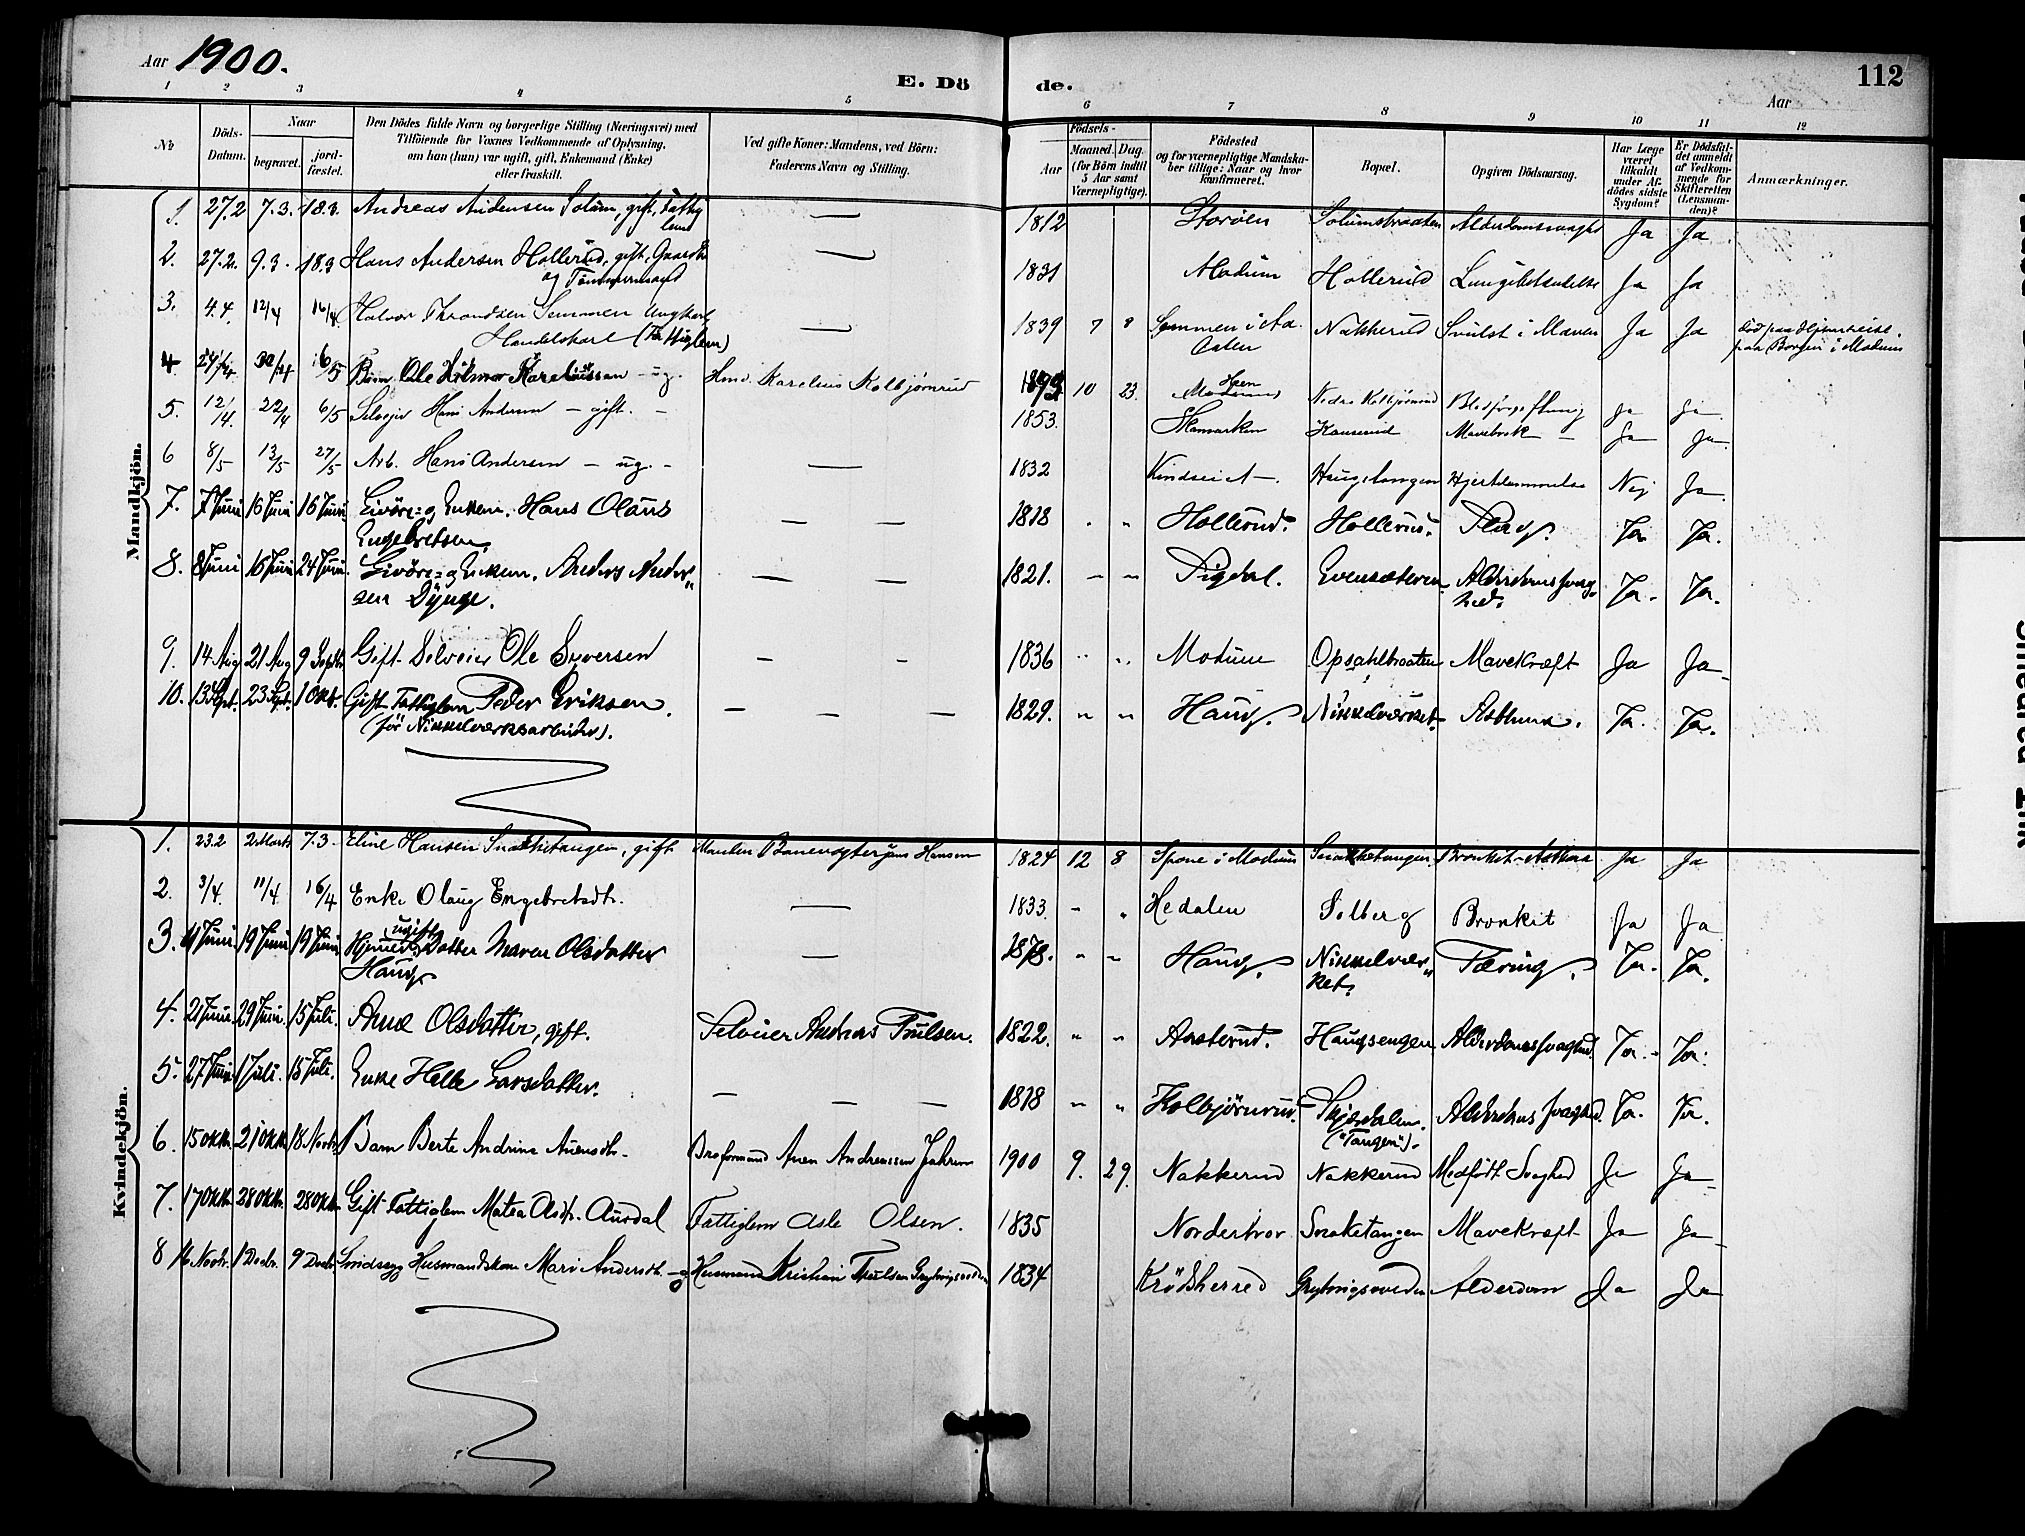 Aar 1900.
E. Dö de.
112
Aar
1 2 3 4 5 6 7 8 9 10 11 12
No
Döds-Datum.
Naar
begravet.
jord-fæstet.
Den Dödes fulde Navn og borgerlige Stilling (Næringsvei) med
Tilföiende for Voxnes Vedkommende af Oplysning,
om han (hun) var ugift, gift, Enkemand (Enke)
eller fraskilt.
Ved gifte Koner: Mandens, ved Börn:
Faderens Navn og Stilling.
Födsels-
Aar
Maaned. Dag.
(for Börn indtil
5 Aar samt
Værnepligtige).
Födested
og for værnepligtige Mandska-
ber tillige: Naar og hvor
konfirmeret.
Bopæl.
Opgiven Dödsaarsag.
Har Læge
været
tilkaldt
under Af-
dödes sidste
Sygdom?
Er Dödsfal-
det anmeldt
af Vedkom-
mende for
Skifteretten
(Lensman-
den)?
Anmærkninger.
Mandkjön.
1. 27.2 7.3. 18.3. Andreas Andersen Solum, gift, Fattig
lem — 1812 Storöen Solumsbraaten Alderdomssvaghed Ja Ja
2. 27.2. 9.3. 18.3 Hans Andersen Hollerud, gift, Gaardbr.
og Tömmermand — 1831 Modum Hollerud Lungebetændelse Ja Ja
3. 4.4. 12/4 16/4 Halvor Throndsen Semmen Ungkarl,
Handelskarl (Fattiglem) — 1839 7 8 Semmen i Aa-
dalen Nakkerud Svulst i Maven Ja Ja död paa Hjemreise
paa Borgen i Modum
4. 24/4 30/4 6/5 Barn Ole Hilmar Kareliussen - ug. Hmd. Karelius Kolbjørnrud 1899 10 23. Modum Nedre Kolbjørnrud Blodforgiftning Ja Ja
5. 12/4. 22/4 6/5 Selveier Hans Andersen - gift. - 1853. Skamarken Mavebrok - Ja Ja
6 8/5 13/5 27/5 Arb. Hans Andersen - ug. - — 1832 Nej Ja.
7. 7 Juni 16 Juni 16 Juni Livöre= og Enkem. Hans Olaus
Engebretsen. — — 1818 " " Hollerud. Hollerud. Ja. Ja.
8. 8 Juni 16 Juni 24 Juni. Livöre= og Enkem. Anders Ander-
sen Dynge. — — 1821. " " Sigdal. Evensæteren Alderdomssvag-
hed. Ja. Ja.
9. 14 Aug 21 Aug 9 Septbr Gift Selveier Ole Syversen — — 1836 " " Modum Opsahlbraaten Mavekræft Ja Ja
10. 13 Sept. 23 Sept. 1 Okt. Gift Fattiglem Peder Eriksen.
(för Nikkelverksarbeider). — — — 1829. " " Haug. Nikkelværket. Asthma. Ja. Ja.
Kvindekjön.
1. 23.2 2 Marts 7.3. Eline Hansen Snaketangen, gift Manden Banevogter Jens Hansen 1824 12 8 Spone i Modum Snaketangen Bronkit-Asthma Ja Ja
2. 3/4. 11/4 16/4 Enke Olaug Engebretsdtr. — 1833. " " Hedalen Solberg Bronkit Ja Ja
3. 11 Juni 19 Juni 19 Juni ugift
Hjemmev. Datter Maren Olsdatter
Haug. — 1878. " " Haug. Nikkelvær-
ket. Tæring. Ja. Ja.
4. 21 Juni. 29 Juni. 15 Juli. Anne Olsdatter, gift. Selveier Andreas Paulsen. 1822. " " Aasterud. Haugsengen. Alderdomssvaghed. Ja. Ja.
5. 27 Juni. 1 Juli. 15 Juli. Enke Helle Larsdatter. — — — 1818 " " Kolbjörnrud. Skjærdalen.
("Tangen"). Alderdoms svaghed. Ja. Ja.
6. 15 Oktr. 21 Oktr. 18 Novbr. Barn Berte Andrine Auensdtr. Broformand Auen Andreassen 1900 9. 29. Nakkerud Nakkerud Medfödt Svaghed Ja Ja
7. 17 Oktr. 28 Oktr. 28 Oktr. Gift Fattiglem Matea Olsdtr. Aurdal Fattiglem Asle Olsen. 1835 Norderhov Snaketangen Mavekræft Ja Ja
8 16 Novbr. 1 Decbr. 9 Decbr. Sindssyg Husmandskone Mari Andersdtr. Husmand Kristian Paulsen 1834 Krödsherred Alderdom Ja Ja